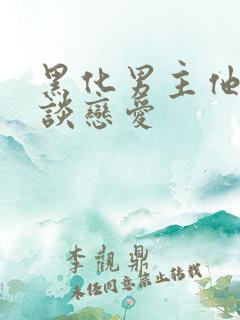 黑化男主他
談戀愛
李觀鼎
未經同意禁止轉載